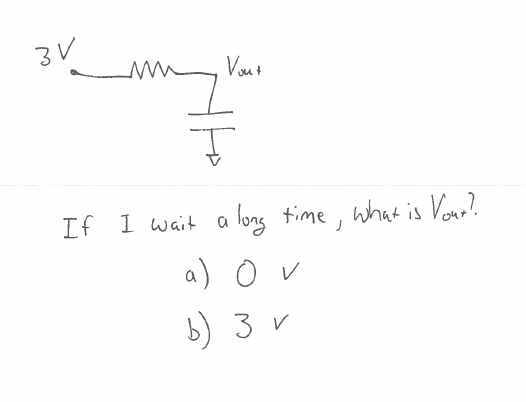 3 V
Vout
If I wait a long time, what is Vout?
a) 0 V
b) 3 V